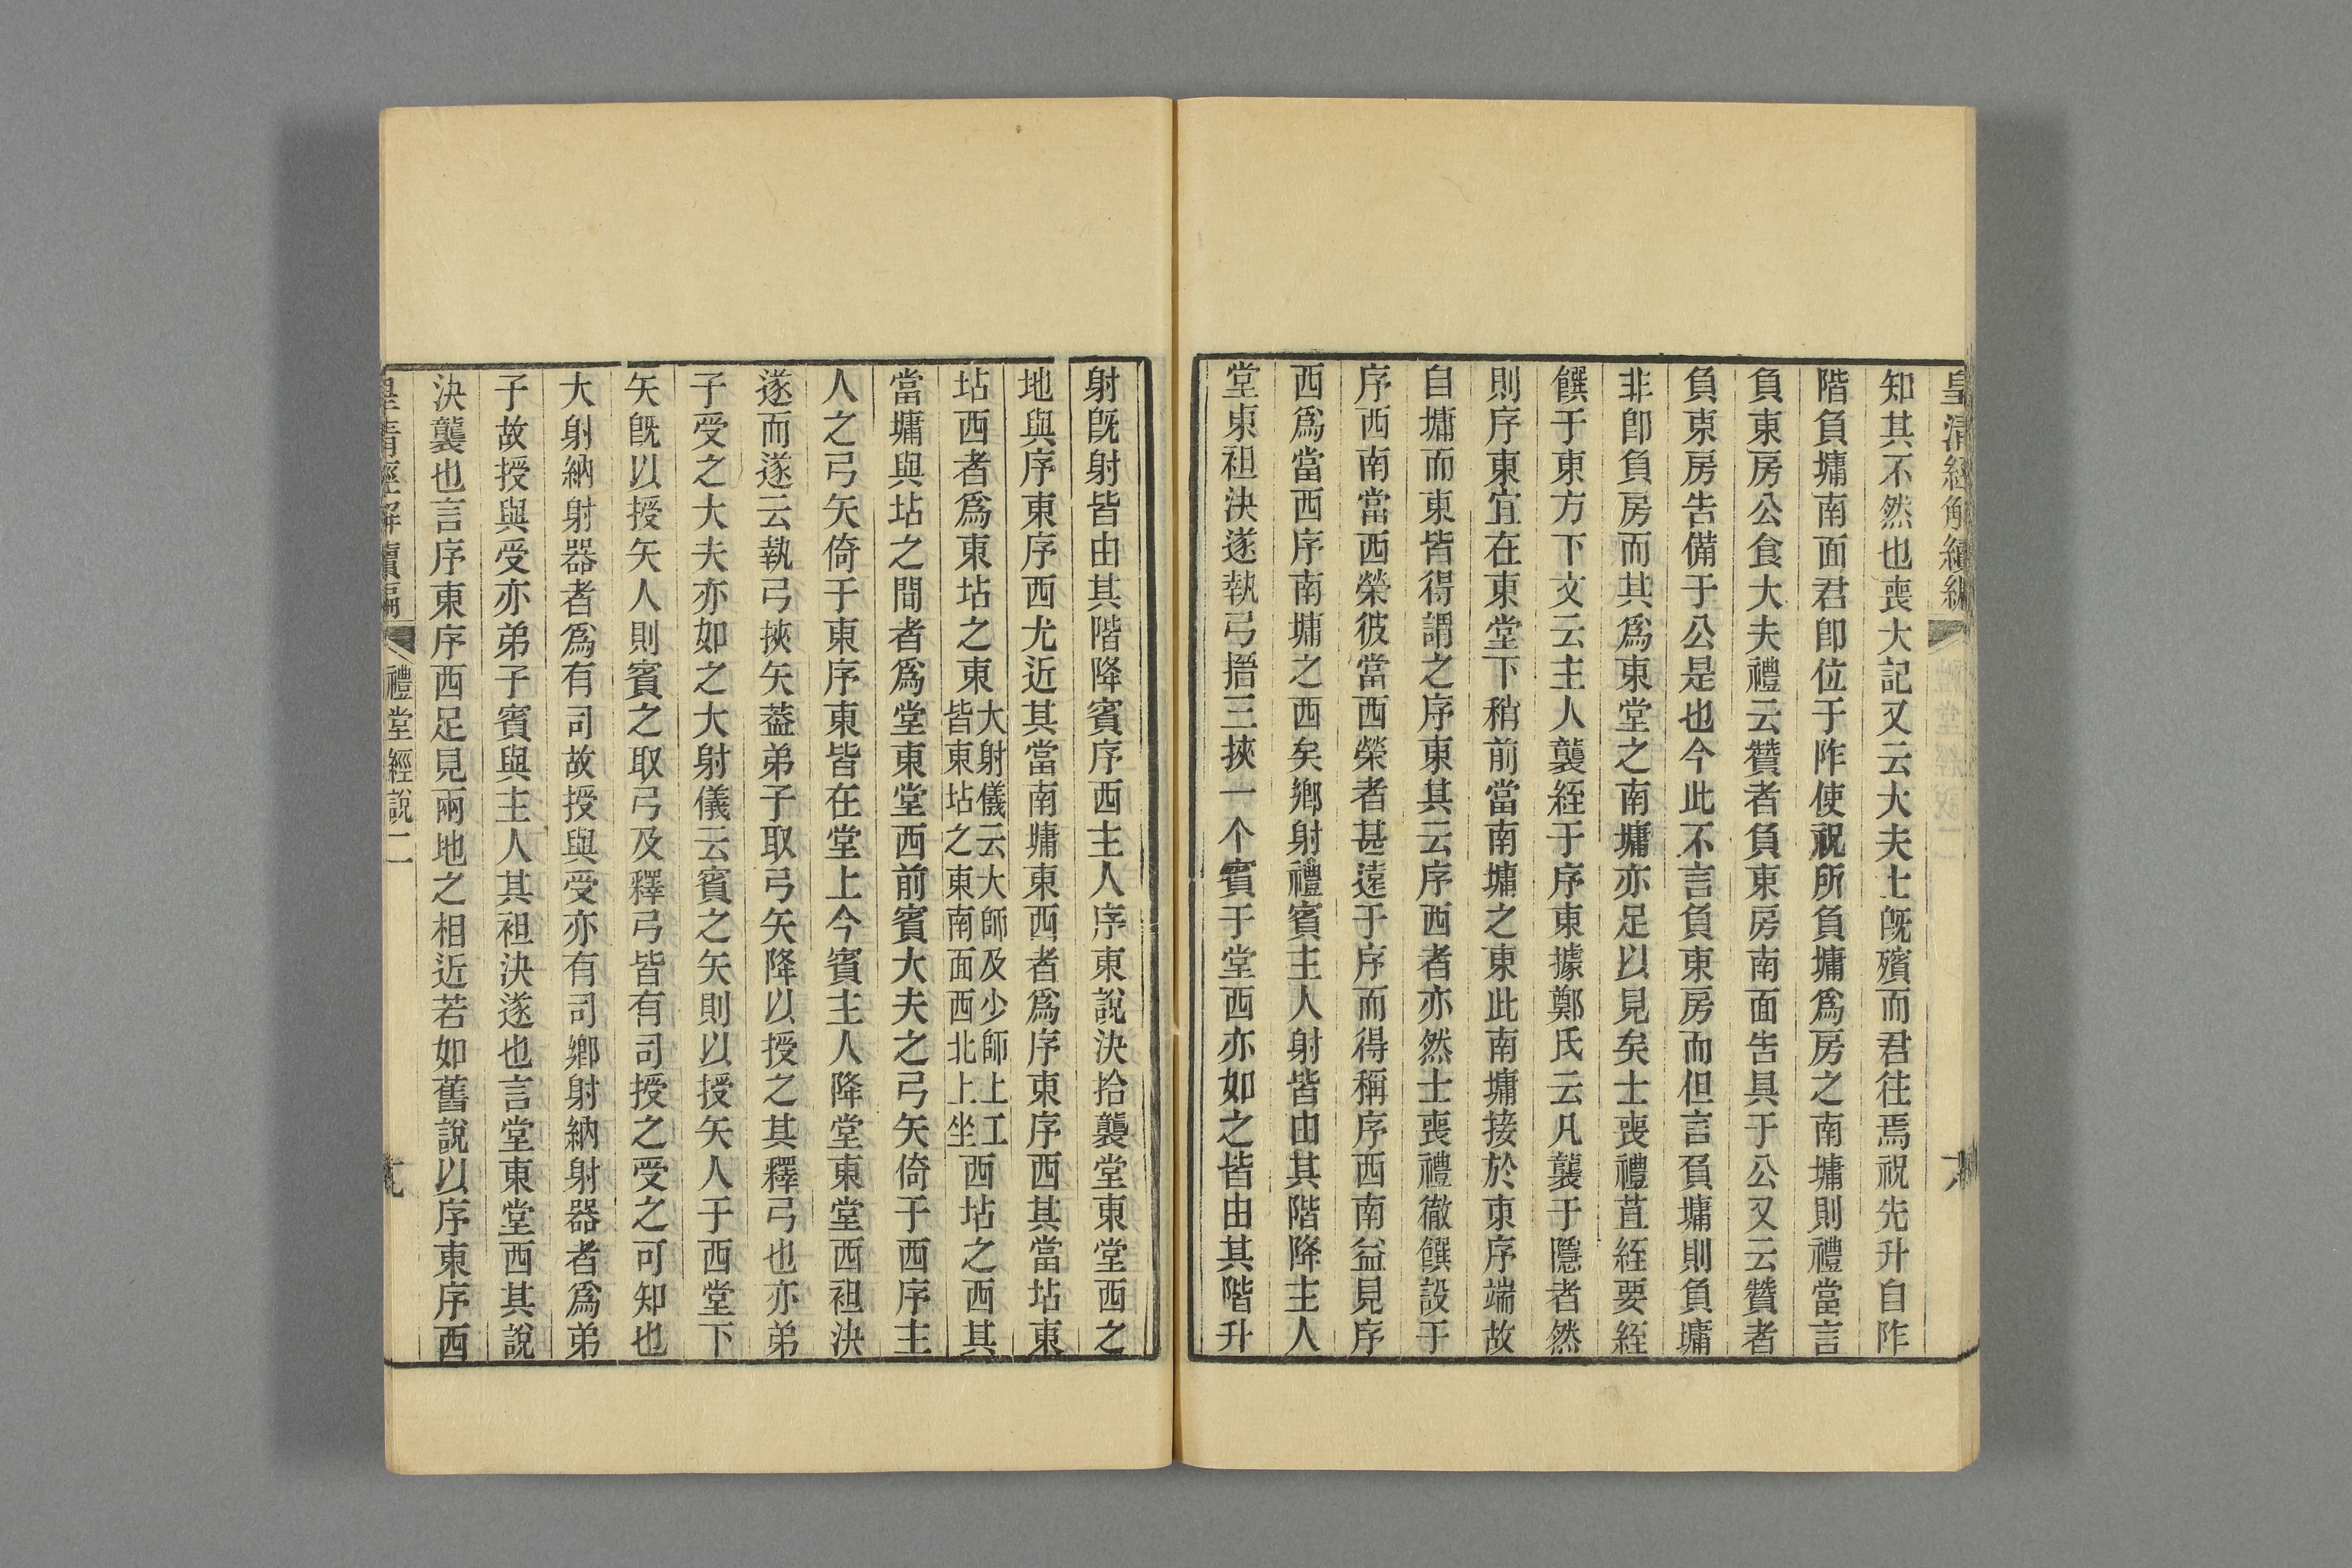 皇清經解續編
知其不然也喪大記又云大夫士旣殯而君往焉祝先升自阼
階負墉南面君卽位于阼使祝所負墉爲房之南墉則禮當言
負東房公食大夫禮云贊者負東房南面告具于公又云贊者
負東房告備于公是也今此不言負東房而但言負墉則負墉
非卽負房而其爲東堂之南墉亦足以見矣士喪禮苴絰要絰
饌于東方下文云主人襲絰于序東據鄭氏云凡襲于隱者然
則序東宜在東堂下稍前當南墉之東此南墉接於東序端故
自墉而東皆得謂之序東其云序西者亦然士喪禮徹饌設于
序西南當西榮彼當西榮者甚遠于序而得稱序西南益見序
西爲當西序南墉之西矣鄉射禮賓主人射皆由其階降主人
堂東袒決遂執弓搢三挾一个賓于堂西亦如之皆由其階升
射旣射皆由其階降賓序西主人序東說決拾襲堂東堂西之
地與序東序西尤近其當南墉東西者爲序東序西其當坫東
坫西者爲東坫之東大射儀云大師及少師上工皆東坫之東南面西北上坐西坫之西其
當墉與坫之間者爲堂東堂西前賓大夫之弓矢倚于西序主
人之弓矢倚于東序東皆在堂上今賓主人降堂東堂西袒決
遂而遂云執弓挾矢葢弟子取弓矢降以授之其釋弓也亦弟
子受之大夫亦如之大射儀云賓之矢則以授矢人于西堂下
矢旣以授矢人則賓之取弓及釋弓皆有司授之受之可知也
大射納射器者爲有司故授與受亦有司鄉射納射器者爲弟
子故授與受亦弟子賓與主人其袒決遂也言堂東堂西其說
決襲也言序東序西足見兩地之相近若如舊說以序東序西
皇清經解續編
禮堂經說二